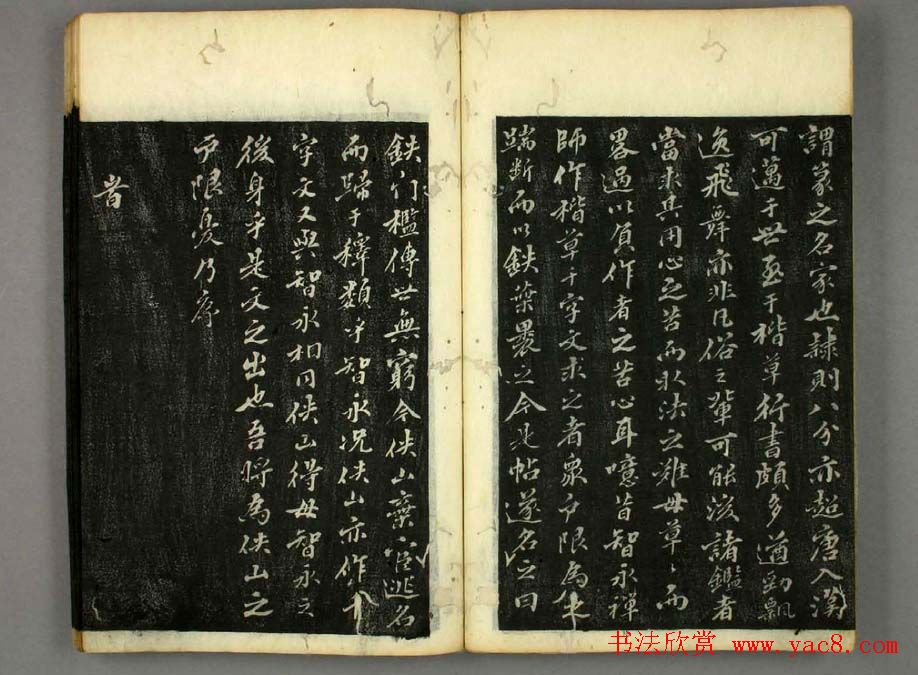 謂篆之名家也隸則八分亦超唐入漢
可邁于世至于楷草行書頗多遒勁飄
逸飛舞亦非凡俗之輩可能泫諸鑑者
當求其用心之苦而永法之難毋草々而
畧過以負作者之苦心耳噫昔智永禪
師作楷草千字文求之者衆戶限為之
踹断而以鉄葉褁之今是帖遂名之曰
鉄門檻傳世無窮今佚山棄官逃名
而歸于釋類乎智永况佚山亦作千
字文又與智永相同佚山得毋智永之
後身乎是文之出也吾將為佚山之
戶限憂乃序
昔
书法欣赏 www.yac8.com